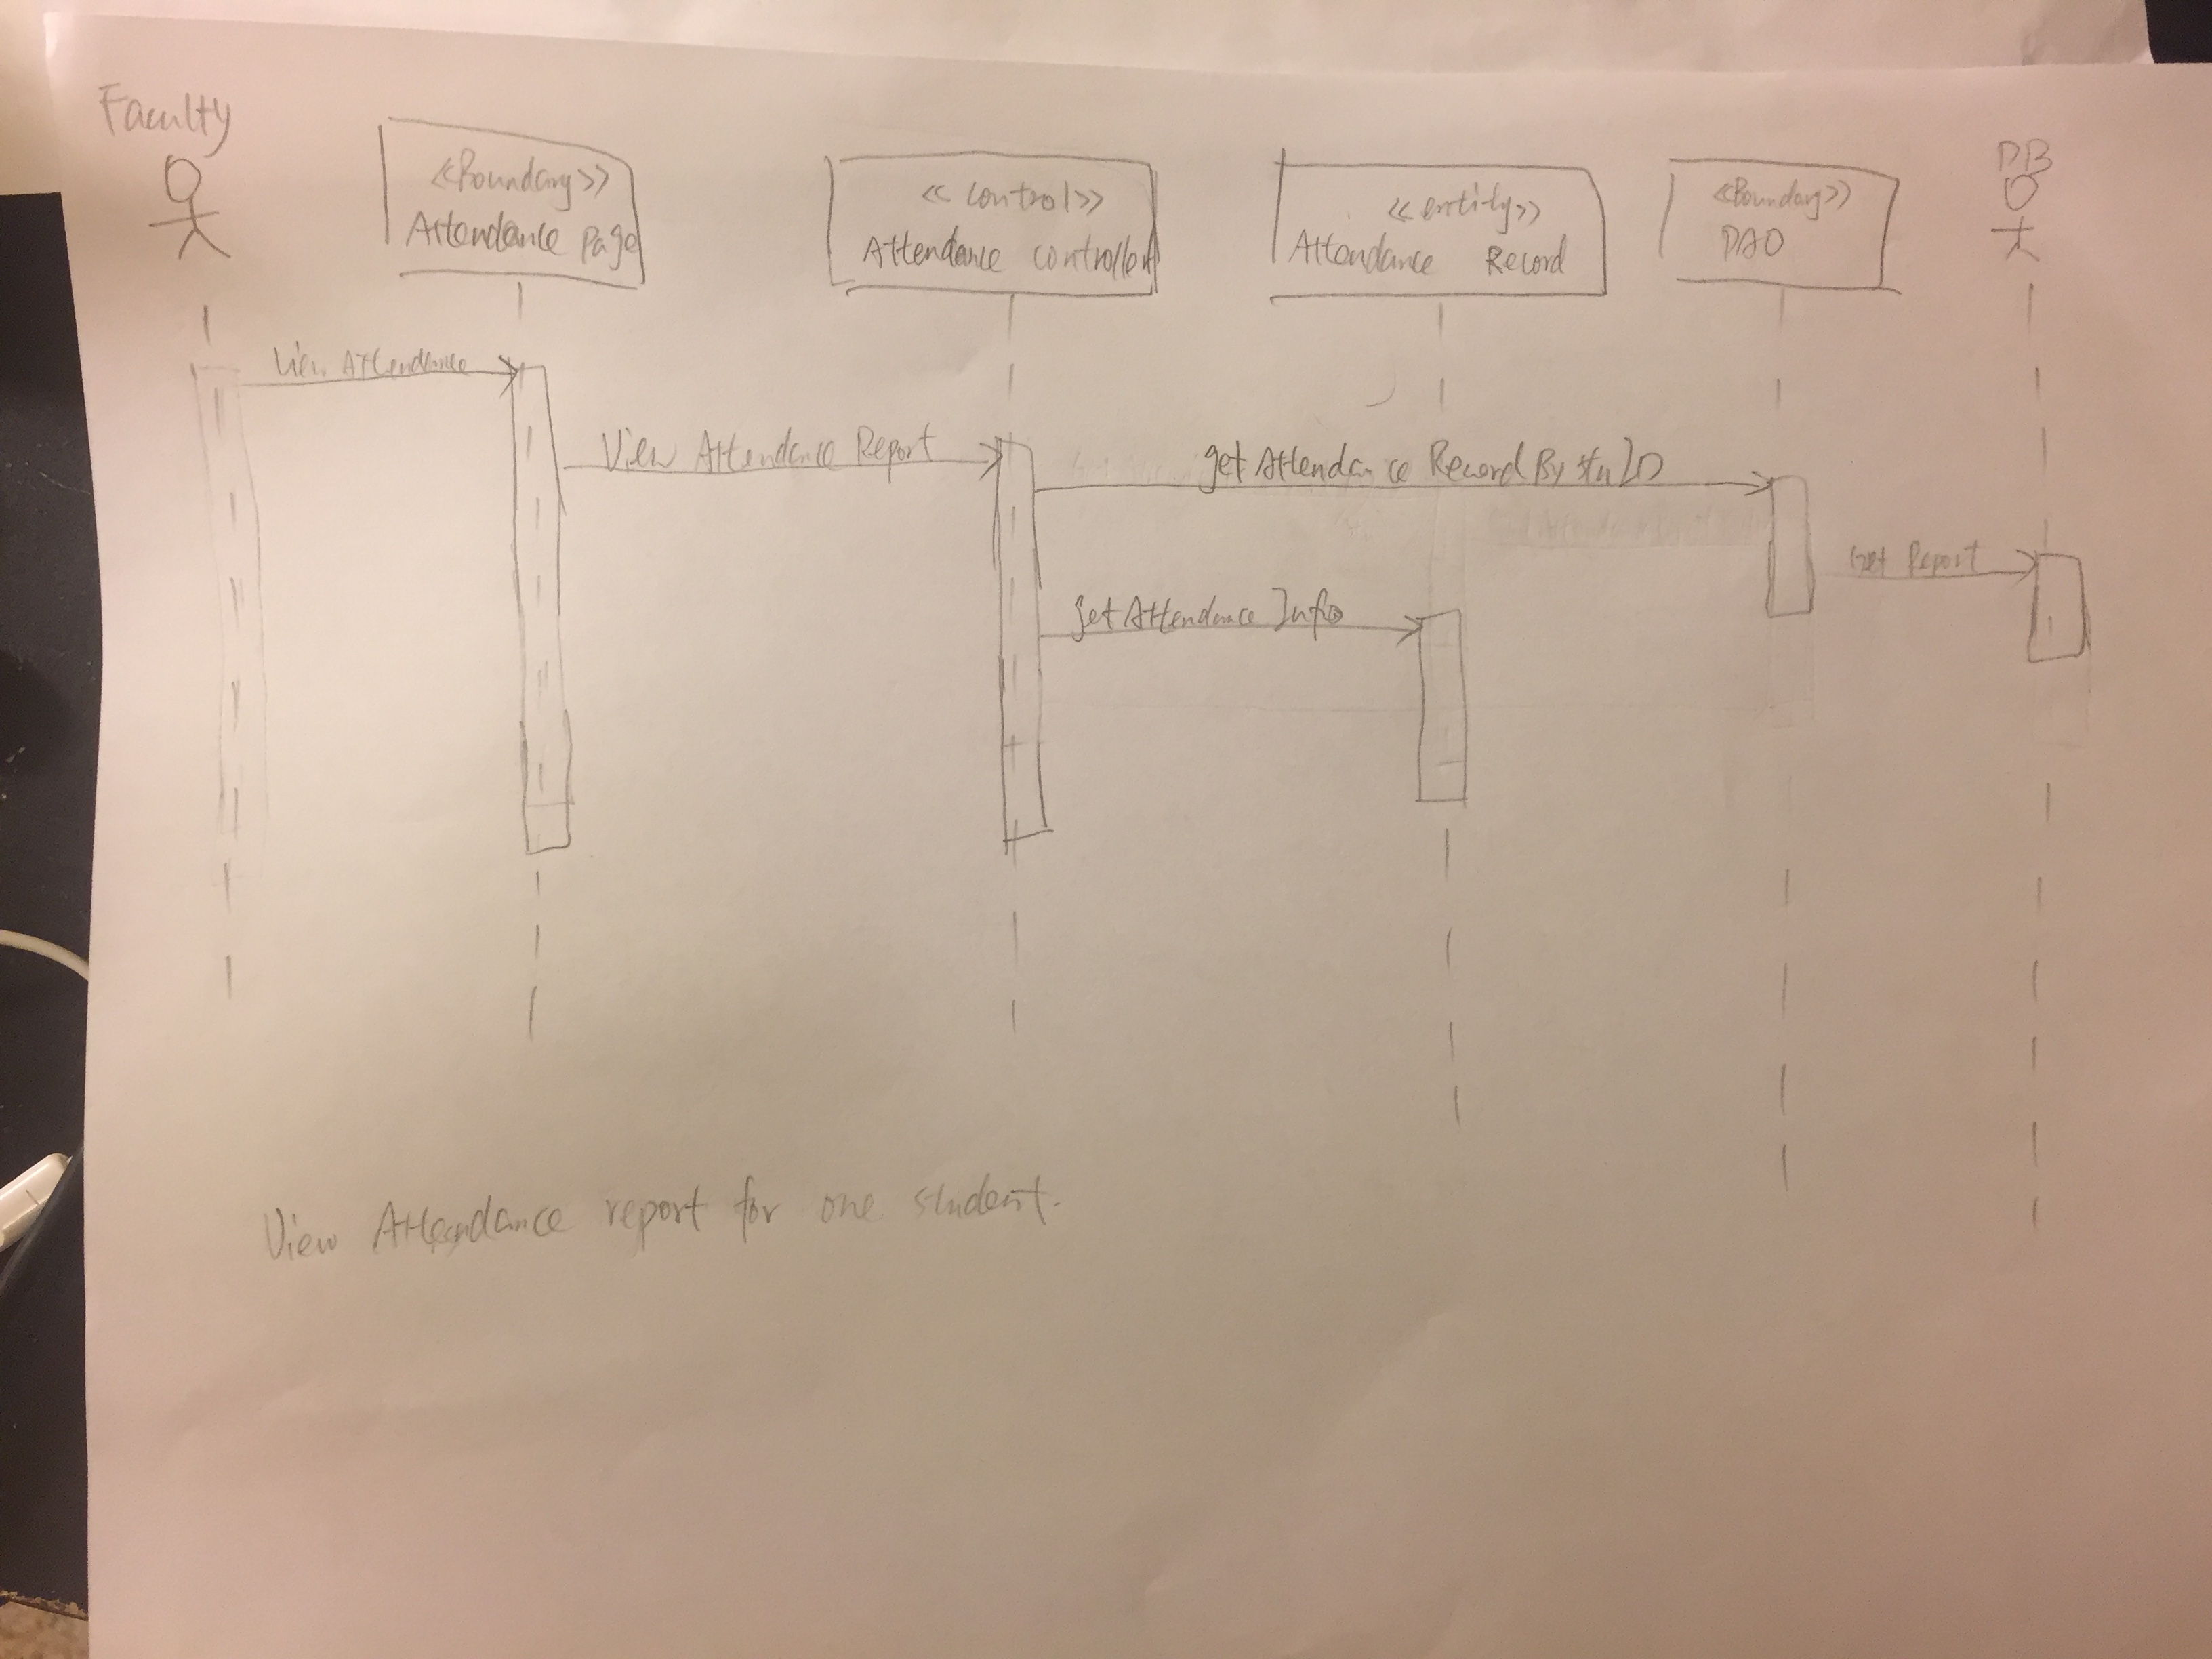 Faculty
<<Boundary>>
Attendance Page
<<control>>
Attendance controller
<<entity>>
Attendance Record
<<Boundary>>
DAO
DB
View Attendance
View Attendance Report
getAttendance RecordBystuID
getAttendanceInfo
Get Report
View Attendance report for one student.